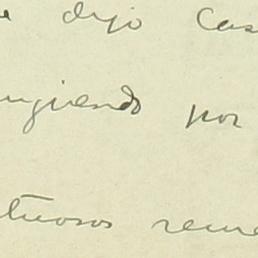 e dijo Cas
ugiendo por
tuosos reme